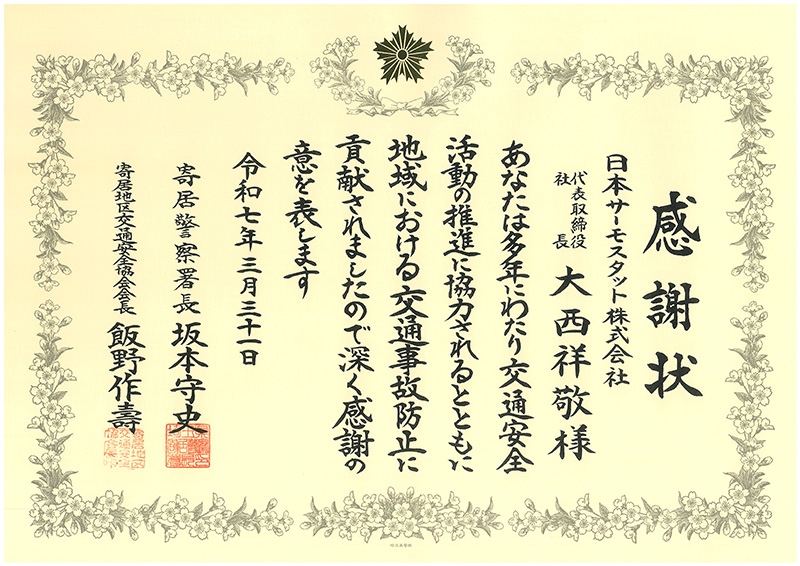 感謝状
日本サーモスタット株式会社
代表取締役
社長
大西祥敬様
あなたは多年にわたり交通安全
活動の推進に協力されるとともに
地域における交通事故防止に
貢献されましたので深く感謝の
意を表します
令和七年三月三十一日
寄居警察署長 坂本守史
寄居地区交通安全協会会長 飯野作壽